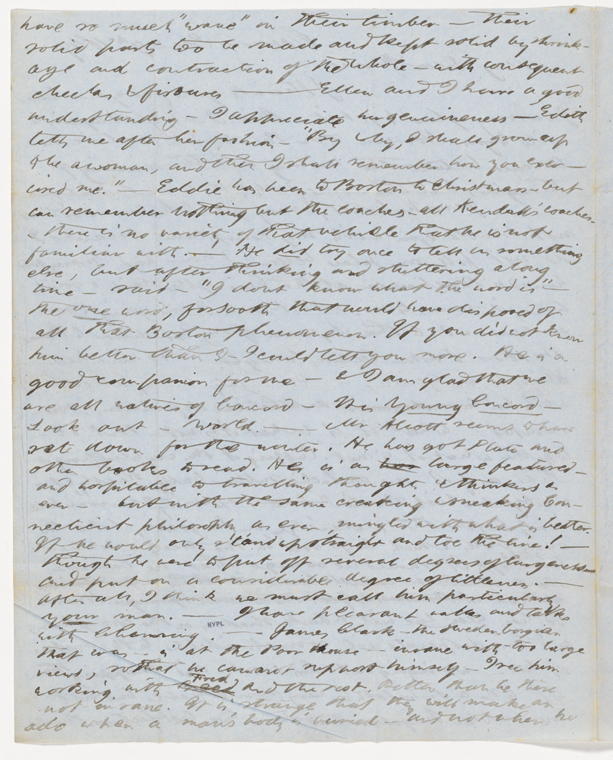 have so much "wane" in their timber — their
solid parts too be made and kept solid by shrink-
age and contraction of the whole — with consequent
checks & fissures —— Ellen and I have a good
understanding — I appreciate her genuineness — Edith
tells me after her fashion — "By & by, I shall grow up
& be a woman, and then I shall remember how you exer-
cised me." — Eddie has been to Boston to Christmas — but
can remember nothing but the coaches — all Kendall's coaches.
there is no variety of that vehicle that he is not
familiar with. — He did try once to tell us something
else, but after thinking and stuttering along
time — said — "I dont know what the word is" —
the one word, forsooth that would have disposed of
all that Boston phenomenon. If you did not know
him better than I — I could tell you more. He is a
good companion for me — & I am glad that we
are all natives of Concord — It is Young Concord —
Look out — World. —— Mr Alcott seems to have
sat down for the winter. He has got Plato and
other books to read. He is as large featured —
and hospitable to travelling thoughts & thinkers as
ever — but with the same creaking & sneaking Con-
necticut philosophy as ever, mingled with what is better.
If he would only stand upstraight and toe the line! —
though he were to put off several degrees of largeness
and put on a considerable degree of littleness. —
After all, I think we must call him particularly
your man. — I have pleasant walks and talks
with Channing. — James Clark — the Swedenborgian
that was — is at the Poor house — insane with too large
views, so that he cannot support himself — I see him
working with Fred and the rest. Better than be there
not insane. It is strange that they will make an
ado when a man's body is buried — and not when he
NYPL